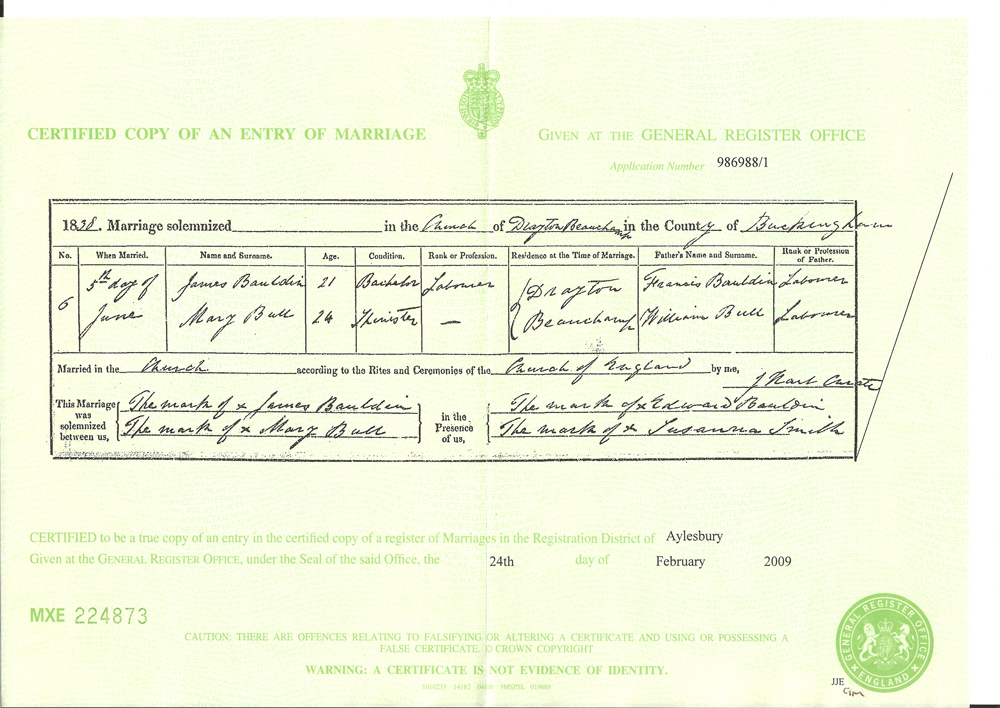 CERTIFIED COPY OF AN ENTRY OF MARRIAGE
GIVEN AT THE GENERAL REGISTER OFFICE
Application Number 986988/1
1838. Marriage solemnized in the Church of Drayton Beauchamp in the County of Buckingham
No. When Married. Name and Surname. Age. Condition. Rank or Profession. Residence at the Time of Marriage. Father's Name and Surname. Rank or Profession of Father.
6 5th day of James Bauldin 21 Bachelor Labourer Drayton Francis Bauldin Labourer
June Mary Bull 24 Spinister — Beauchamp William Bull Labourer
Married in the Church according to the Rites and Ceremonies of the Church of England by me,
J Hart Curate
This Marriage was solemnized between us,
The mark of x James Bauldin
The mark of x Mary Bull
in the Presence of us,
The mark of x Edward Bauldin
The mark of x Susanna Smith
CERTIFIED to be a true copy of an entry in the certified copy of a register of Marriages in the Registration District of Aylesbury
Given at the GENERAL REGISTER OFFICE, under the Seal of the said Office, the 24th day of February 2009
MXE 224873
CAUTION: THERE ARE OFFENCES RELATING TO FALSIFYING OR ALTERING A CERTIFICATE AND USING OR POSSESSING A
FALSE CERTIFICATE. © CROWN COPYRIGHT
WARNING: A CERTIFICATE IS NOT EVIDENCE OF IDENTITY.
GENERAL REGISTER OFFICE
ENGLAND
JJE